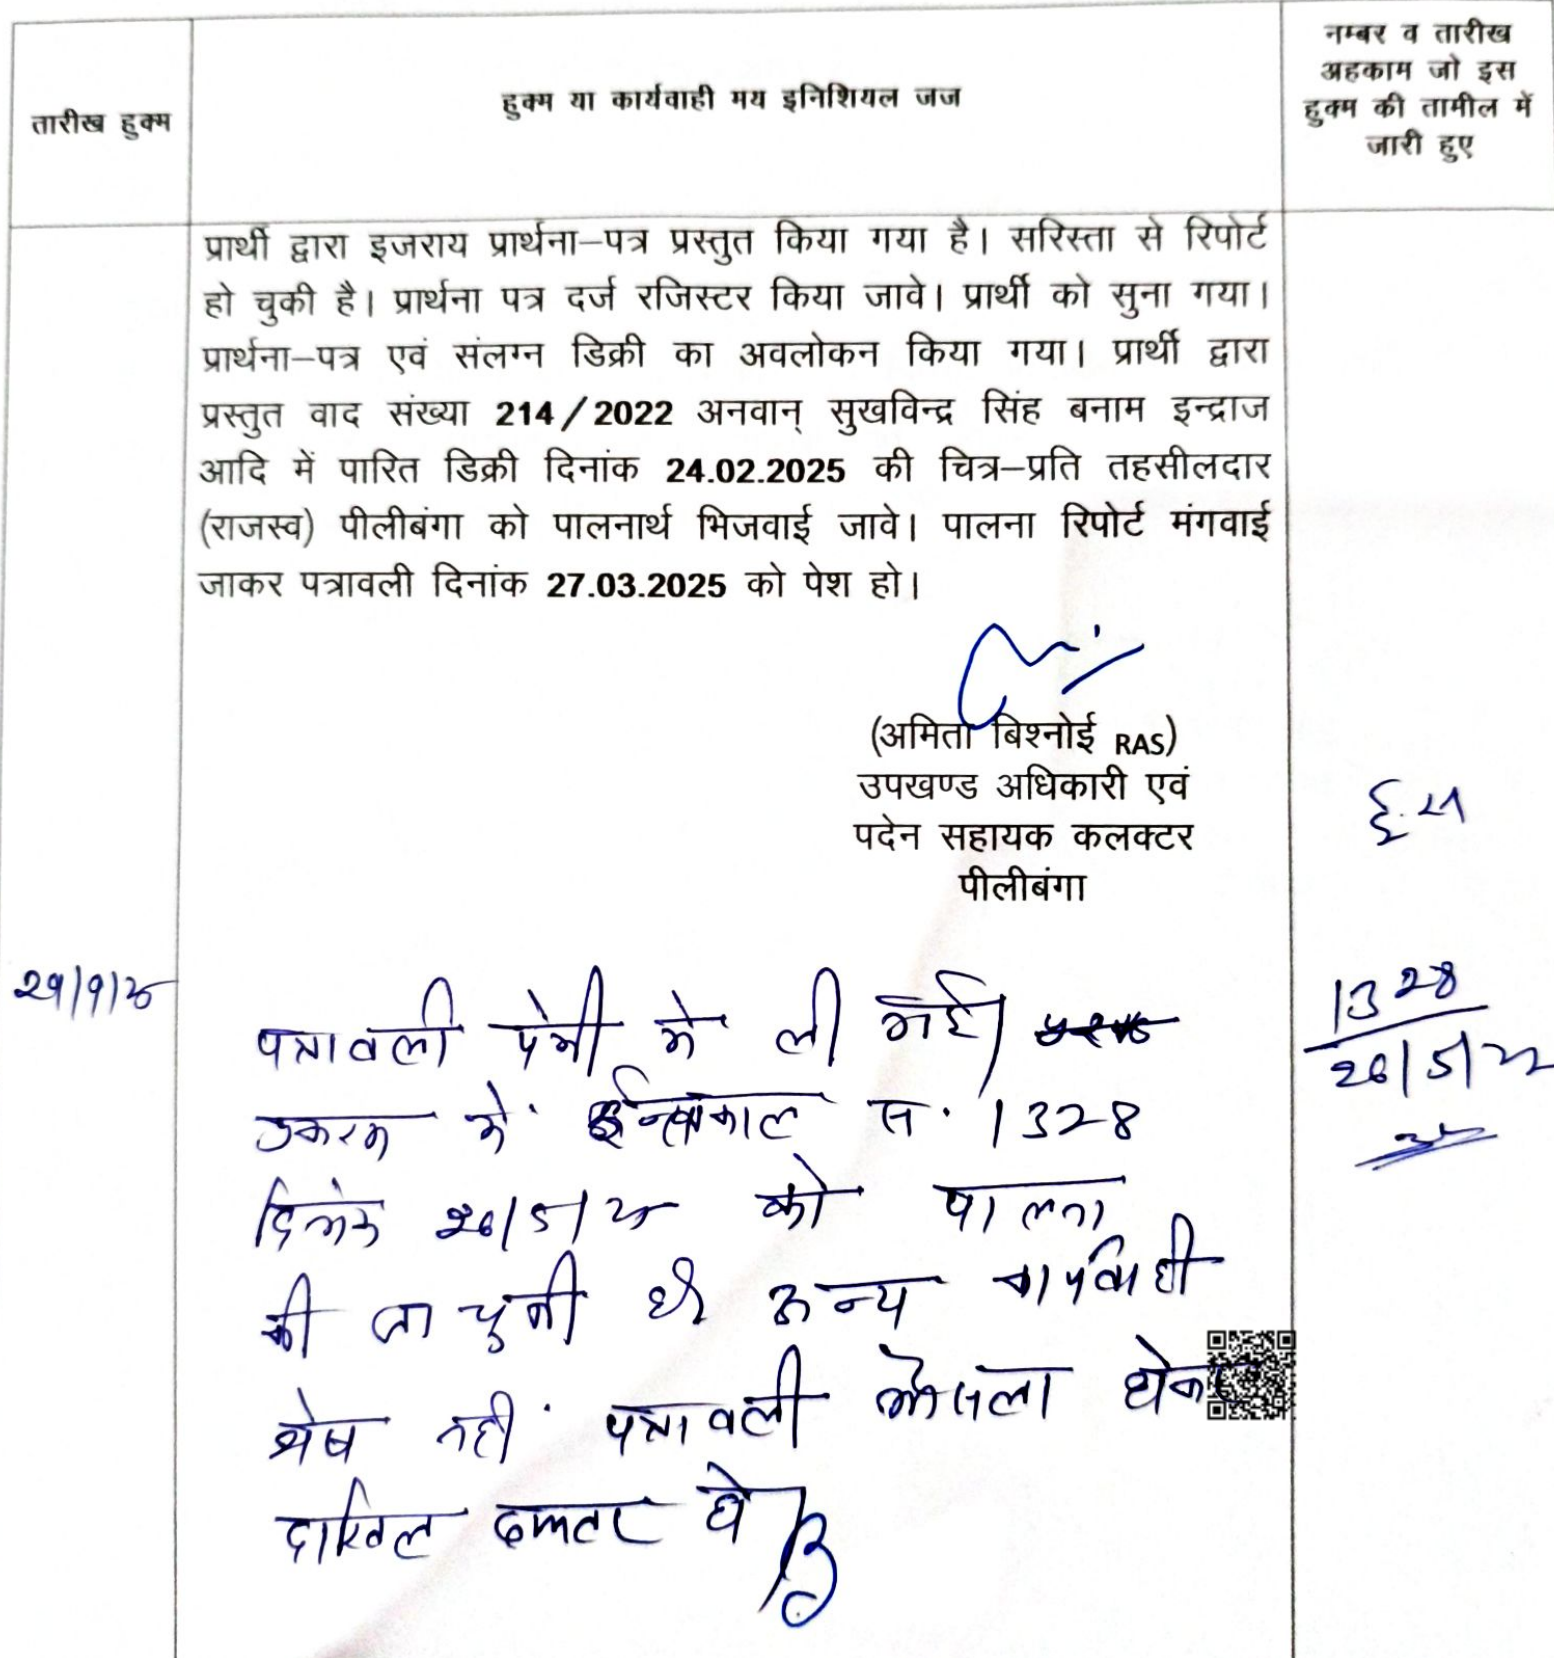 तारीख हुक्म
हुक्म या कार्यवाही मय इनिशियल जज
नम्बर व तारीख
अहकाम जो इस
हुक्म की तामील में
जारी हुए
प्रार्थी द्वारा इजराय प्रार्थना–पत्र प्रस्तुत किया गया है। सरिस्ता से रिपोर्ट
हो चुकी है। प्रार्थना पत्र दर्ज रजिस्टर किया जावे। प्रार्थी को सुना गया।
प्रार्थना–पत्र एवं संलग्न डिक्री का अवलोकन किया गया। प्रार्थी द्वारा
प्रस्तुत वाद संख्या 214/2022 अनवान् सुखविन्द्र सिंह बनाम इन्द्राज
आदि में पारित डिक्री दिनांक 24.02.2025 की चित्र–प्रति तहसीलदार
(राजस्व) पीलीबंगा को पालनार्थ भिजवाई जावे। पालना रिपोर्ट मंगवाई
जाकर पत्रावली दिनांक 27.03.2025 को पेश हो।
(अमिता बिश्नोई RAS)
उपखण्ड अधिकारी एवं
पदेन सहायक कलक्टर
पीलीबंगा
पत्रावली पेशी मे ली गई।
1328
में स. 1328
दिनांक को पालना
की जा चुकी है अन्य कार्यवाही
शेष नहीं पत्रावली फैसला होकर
दाखिल दफ्तर हो